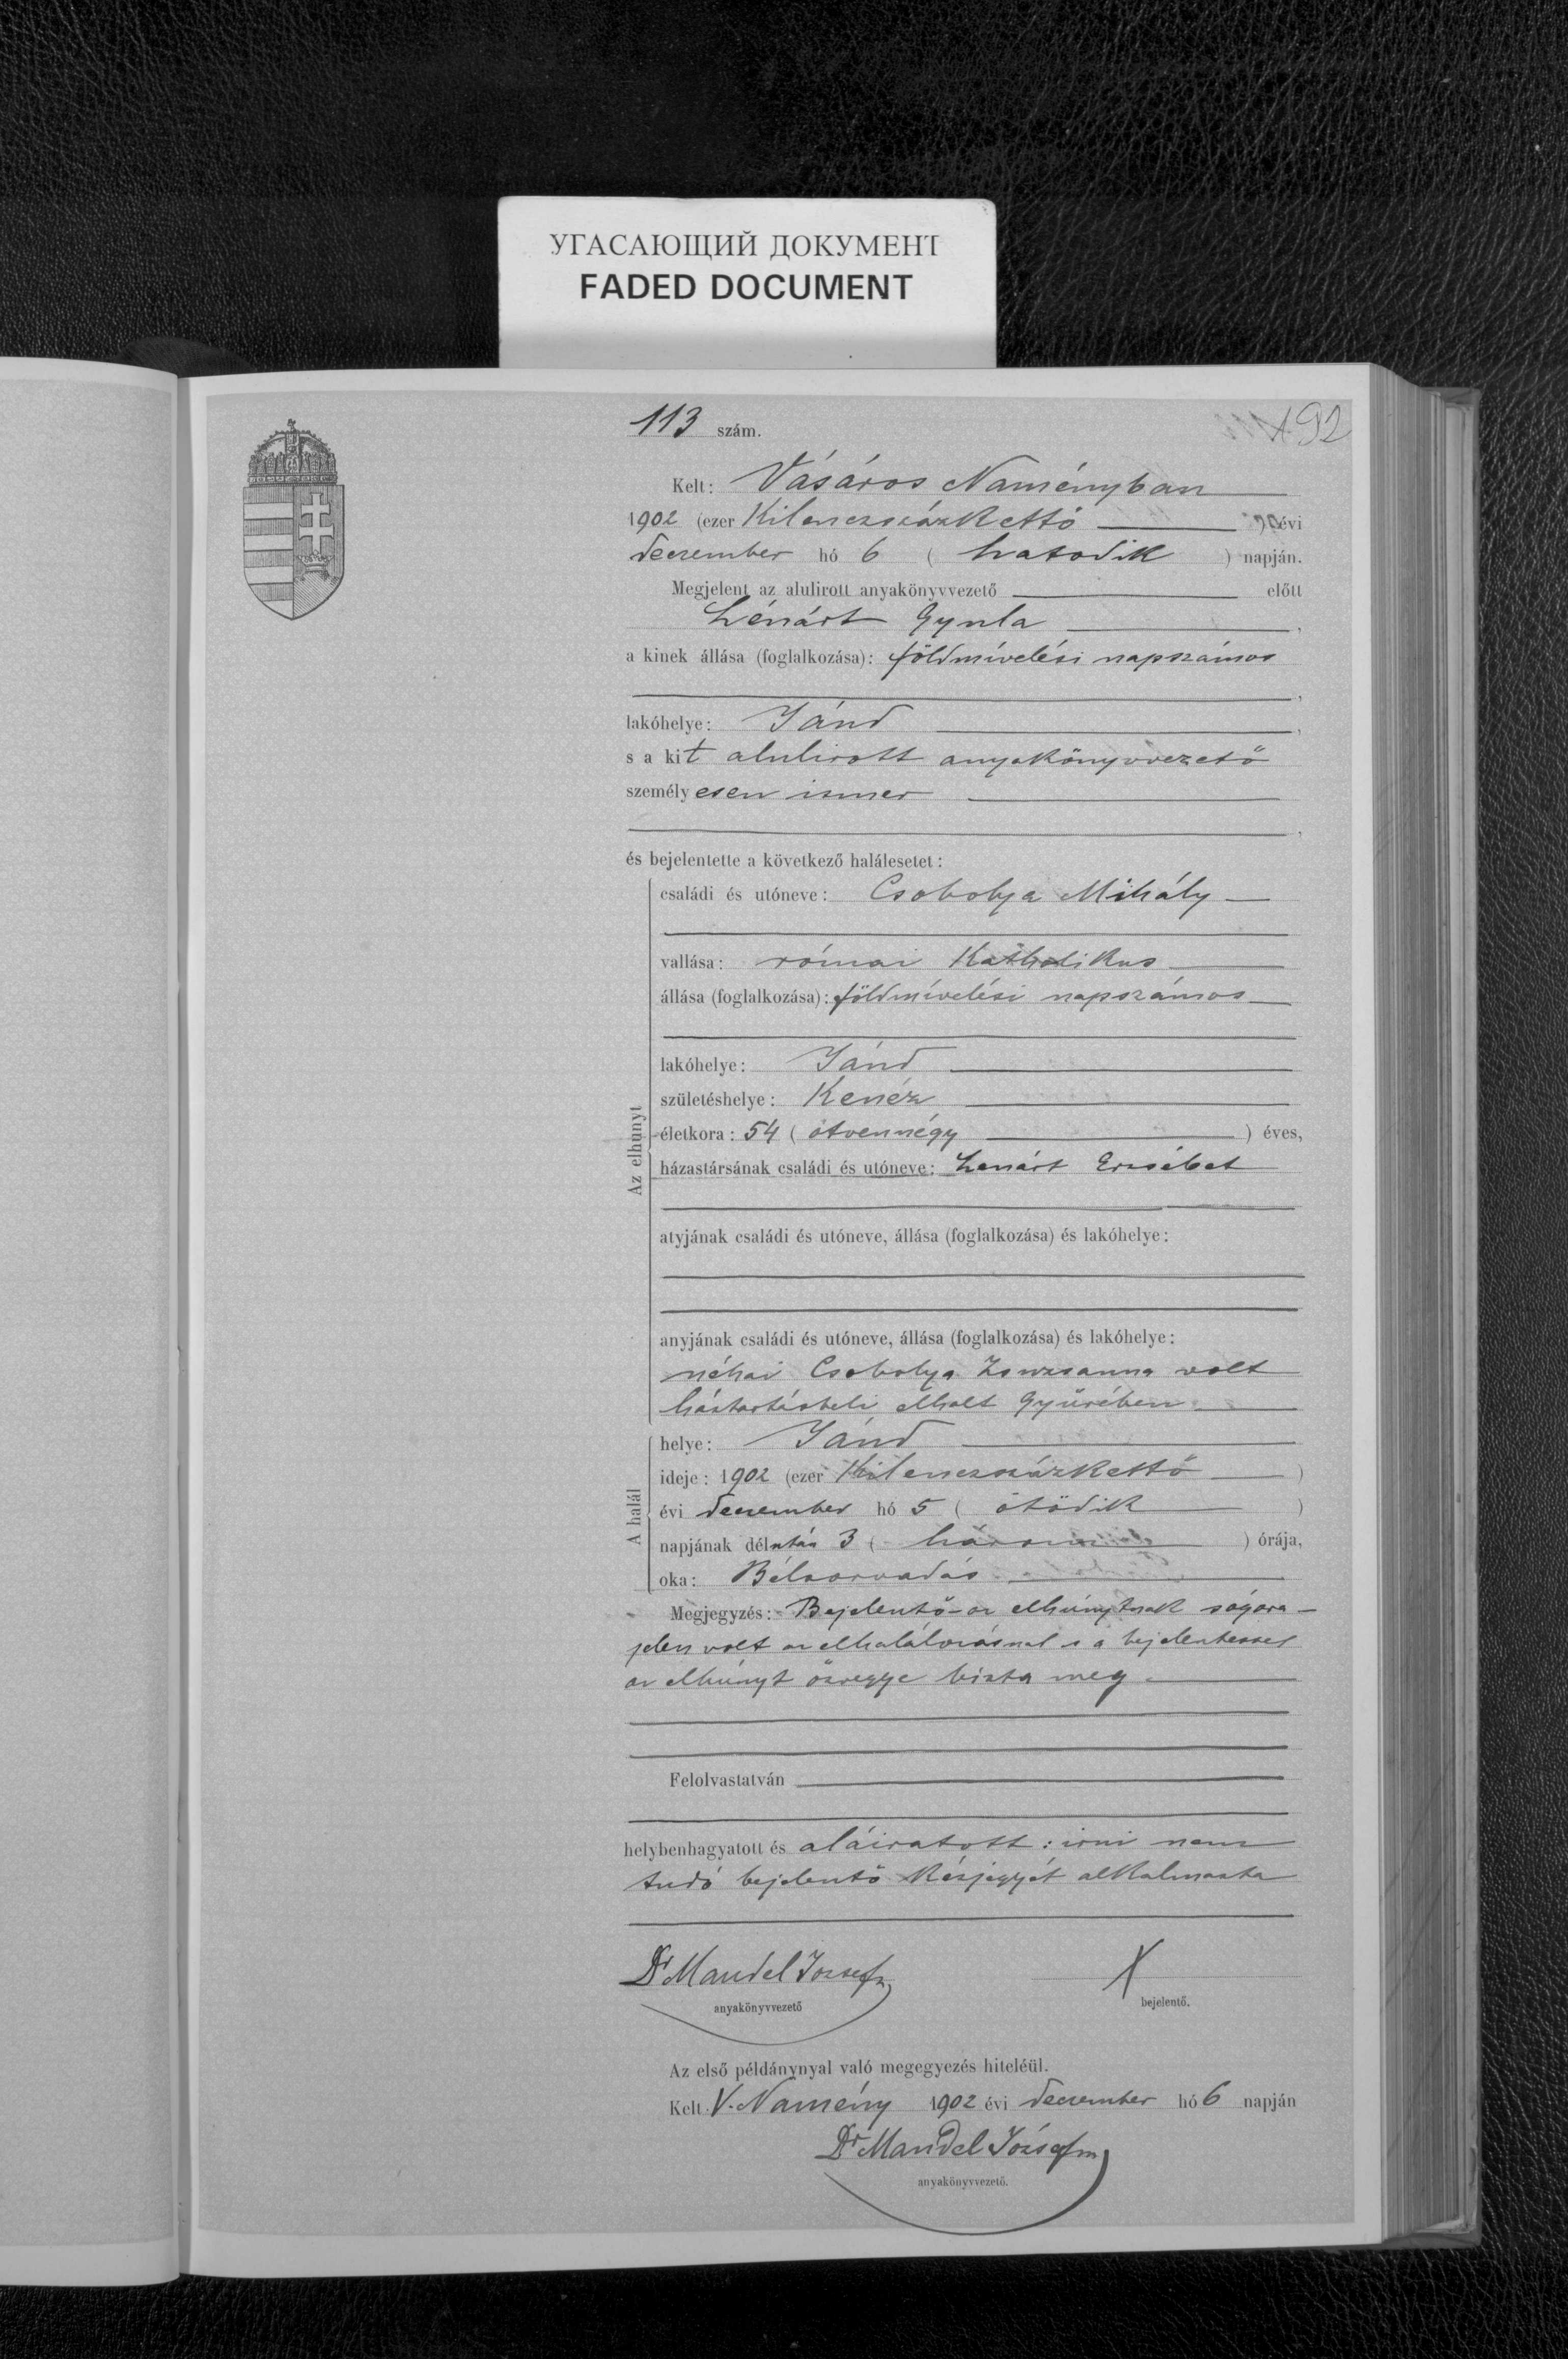 УГАСАЮЩИЙ ДОКУМЕНТ
FADED DOCUMENT
192
113 szám.
Kelt: Vásáros Naményban
1902 (ezer Kilenczszázkettő ) évi
deczember hó 6 ( hatodik ) napján.
Megjelent az alulirott anyakönyvvezető előtt
Lénárt Gyula ,
a kinek állása (foglalkozása): földmívelési napszámos
,
lakóhelye: Jánd ,
s a kit alulirott anyakönyvvezető
személyesen ismer
,
és bejelentette a következő halálesetet:
Az elhunyt
családi és utóneve: Csobolya Mihály
vallása: római Katholikus
állása (foglalkozása): földmívelési napszámos
lakóhelye: Jánd
születéshelye: Kenéz
életkora: 54 ( ötvennégy ) éves,
házastársának családi és utóneve: Lenárt Erzsébet
atyjának családi és utóneve, állása (foglalkozása) és lakóhelye:
anyjának családi és utóneve, állása (foglalkozása) és lakóhelye:
néhai Csobolya Zsuzsanna volt
háztartásbeli elhalt Gyürében
A halál
helye: Jánd
ideje: 1902 (ezer Kilenczszázkettő )
évi deczember hó 5 ( ötödik )
napjának délután 3 ( három ) órája,
oka: Bélsorvadás
Megjegyzés: Bejelentő az elhúnytnak sógora
jelen volt az elhalálozásnál s a bejelentéssel
az elhúnyt özvegye bízta meg.
Felolvastatván
helybenhagyatott és aláiratott: irni nem
tudó bejelentő kézjegyét alkalmazta
Dr Mandel József X
anyakönyvvezető bejelentő.
Az első példánynyal való megegyezés hiteléül.
Kelt V. Namény 1902 évi deczember hó 6 napján
Dr Mandel József
anyakönyvvezető.